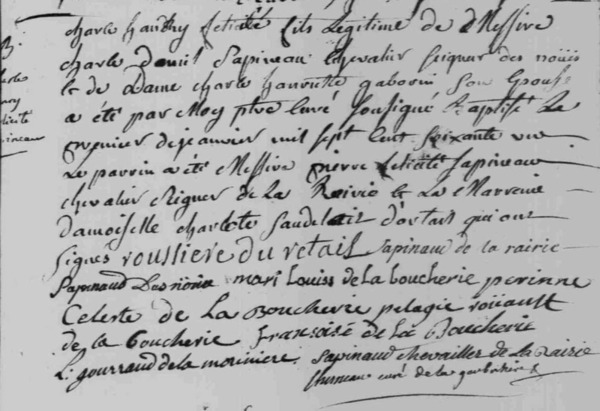 B.
charle hanrhy felicité fils legitime de Messire
charle daniel Sapineau chevalier seigneur des noües
et de Dame charle hanriette gaborin son Epouse
a été par Moy ptre curé soussigné Baptisé Le
premier de janvier mil sept cent soixante une
Le parrin a été Messire pierre felicité Sapineau
chevalier seigneur de La Rairie et La Marreine
damoiselle charlote Gaudelait d'ortait qui ont
signés roussiere du retail Sapinaud de la rairie
Sapinaud Des noües mari Louise de la boucherie perinne
Celeste de La Boucherie pelagie roüault
de la boucherie françoise de La Boucherie
L. gourraud de la moriniere. Sapinaud chevallier de La Rairie
curé de la